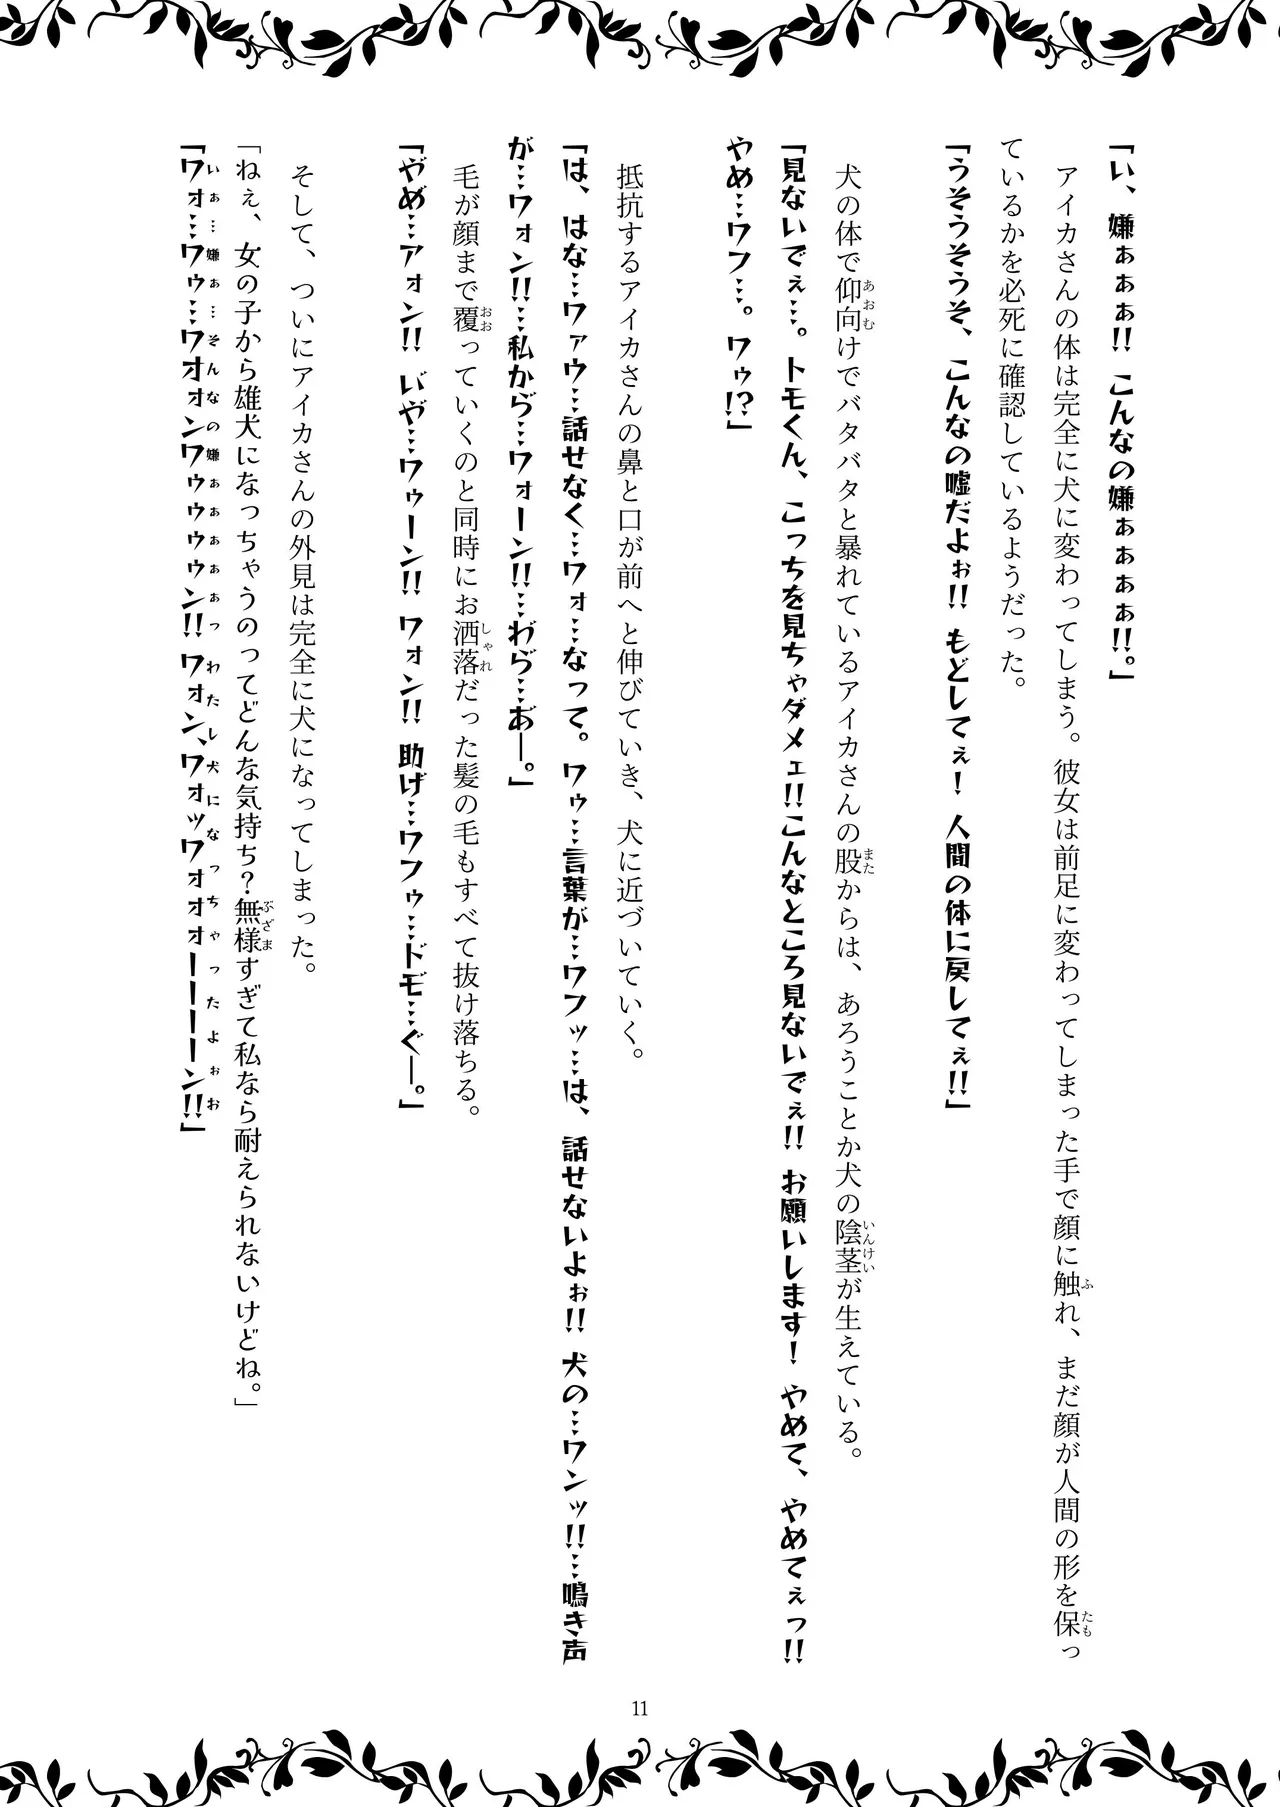 「い、嫌ぁぁぁ!! こんなの嫌ぁぁぁぁ!!。」
アイカさんの体は完全に犬に変わってしまう。彼女は前足に変わってしまった手で顔に触れ、まだ顔が人間の形を保っ
ているかを必死に確認しているようだった。
「うそうそうそ、こんなの嘘だよぉ!! もどしてぇ! 人間の体に戻してぇ!!」
犬の体で仰向けでバタバタと暴れているアイカさんの股からは、あろうことか犬の陰茎が生えている。
「見ないでぇ…。トモくん、こっちを見ちゃダメェ!!こんなところ見ないでぇ!! お願いします! やめて、やめてぇっ!!
やめ…ワフ…。ワゥ!?」
抵抗するアイカさんの鼻と口が前へと伸びていき、犬に近づいていく。
「は、はな…ワァウ…話せなく…ワォ…なって。ワゥ…言葉が…ワフッ…は、話せないよぉ!! 犬の…ワンッ!!…鳴き声
が…ワォン!!…私からﾞ…ワォーン!!…わﾞらﾞ…あﾞー。」
毛が顔まで覆っていくのと同時にお洒落だった髪の毛もすべて抜け落ちる。
「やﾞめ…アォン!! いﾞやﾞ…ワゥーン!! ワォン!! 助げ…ワフゥ…ドモﾞ…ぐー。」
そして、ついにアイカさんの外見は完全に犬になってしまった。
「ねぇ、女の子から雄犬になっちゃうのってどんな気持ち?無様すぎて私なら耐えられないけどね。」
「ワォ…ワゥ…ワオォンワゥゥゥゥン!! ワォン、ワォッワォォォーーーーン!!」
あおむ
また
いんけい
ふ
たも
おお
しゃれ
ぶざま
いぁ…嫌ぁ…そんなの嫌ぁぁぁぁっ わたし犬になっちゃったよぉお
11